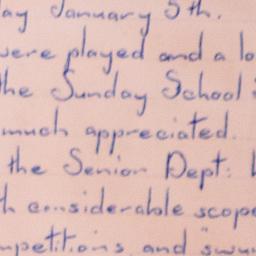 ay January 5th.
were played and a lo
the Sunday School
much appreciated.
the Senior Dept:
h considerable scope
mpetitions and "swum